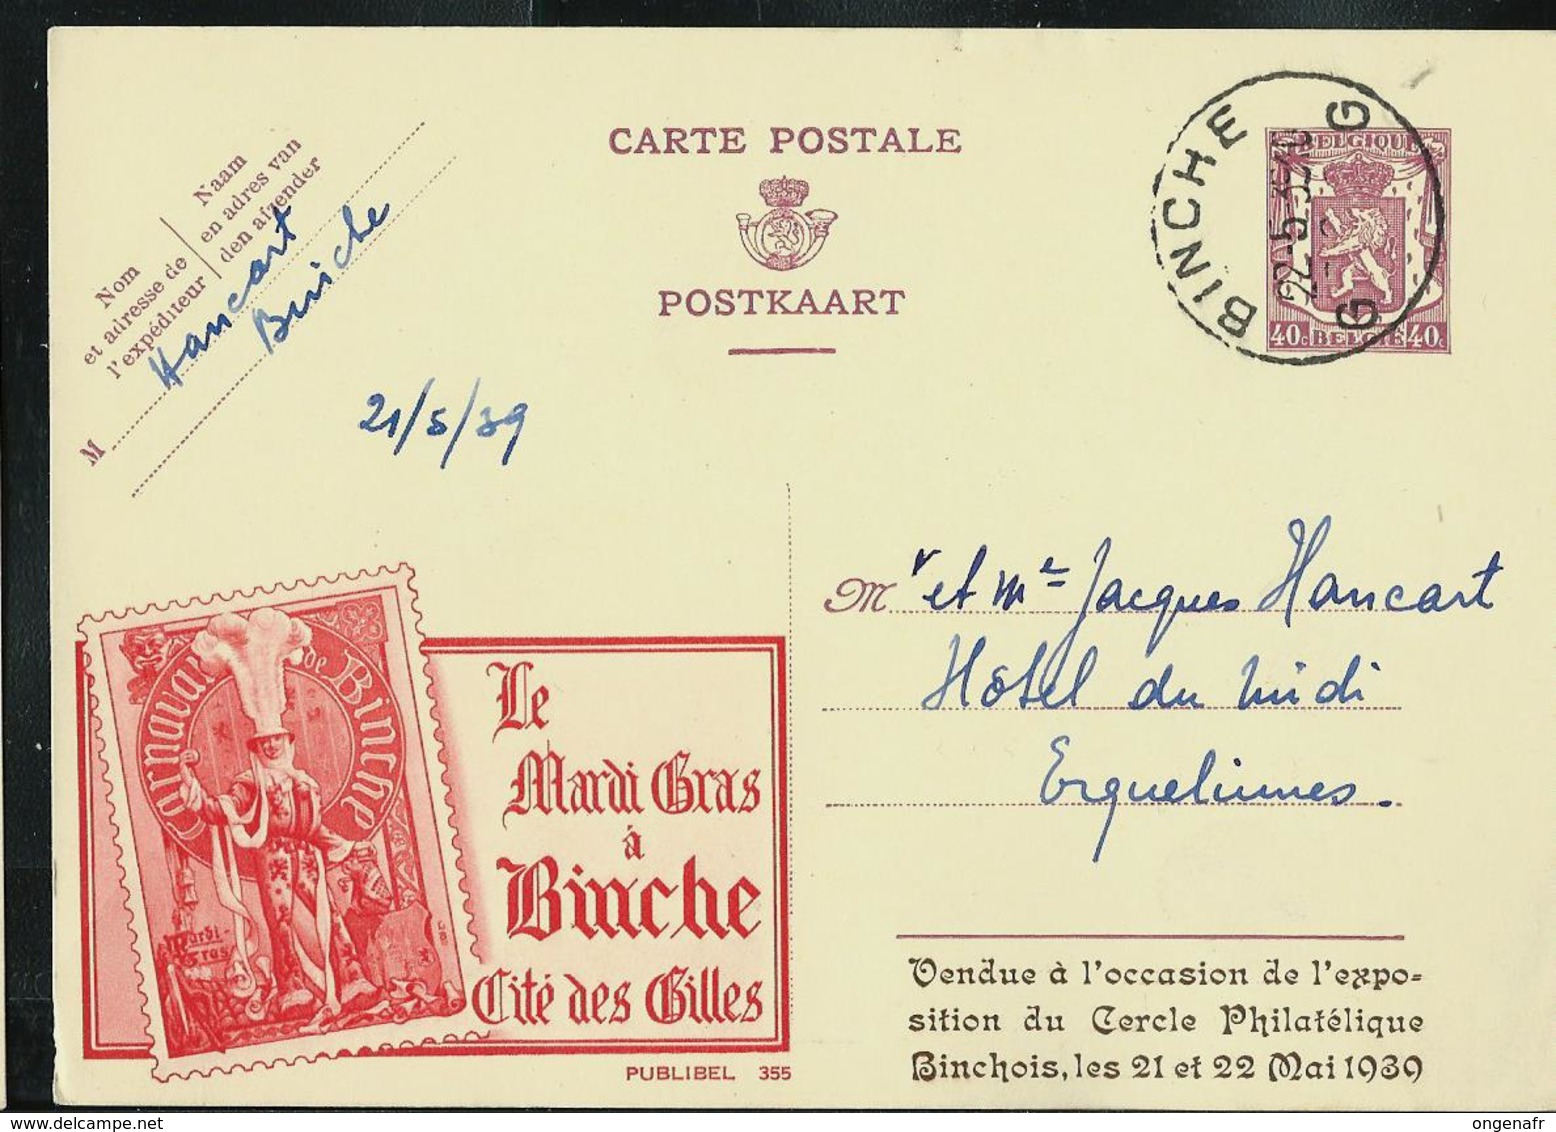 CARTE POSTALE
POSTKAART
Nom
et adresse de
l'expéditeur
Naam
en adres van
den afzender
M
Hancart
Binche
21/5/39
BINCHE
22-5
G G
BELGIQUE
40c BELGIË 40c
Mr et Me Jacques Hancart
Hôtel du Midi
Erquelinnes.
Carnaval de Binche
Mardi-
Gras
Le
Mardi Gras
à
Binche
Cité des Gilles
PUBLIBEL 355
Vendue à l'occasion de l'expo=
sition du Cercle Philatélique
Binchois, les 21 et 22 Mai 1939
ongenafr